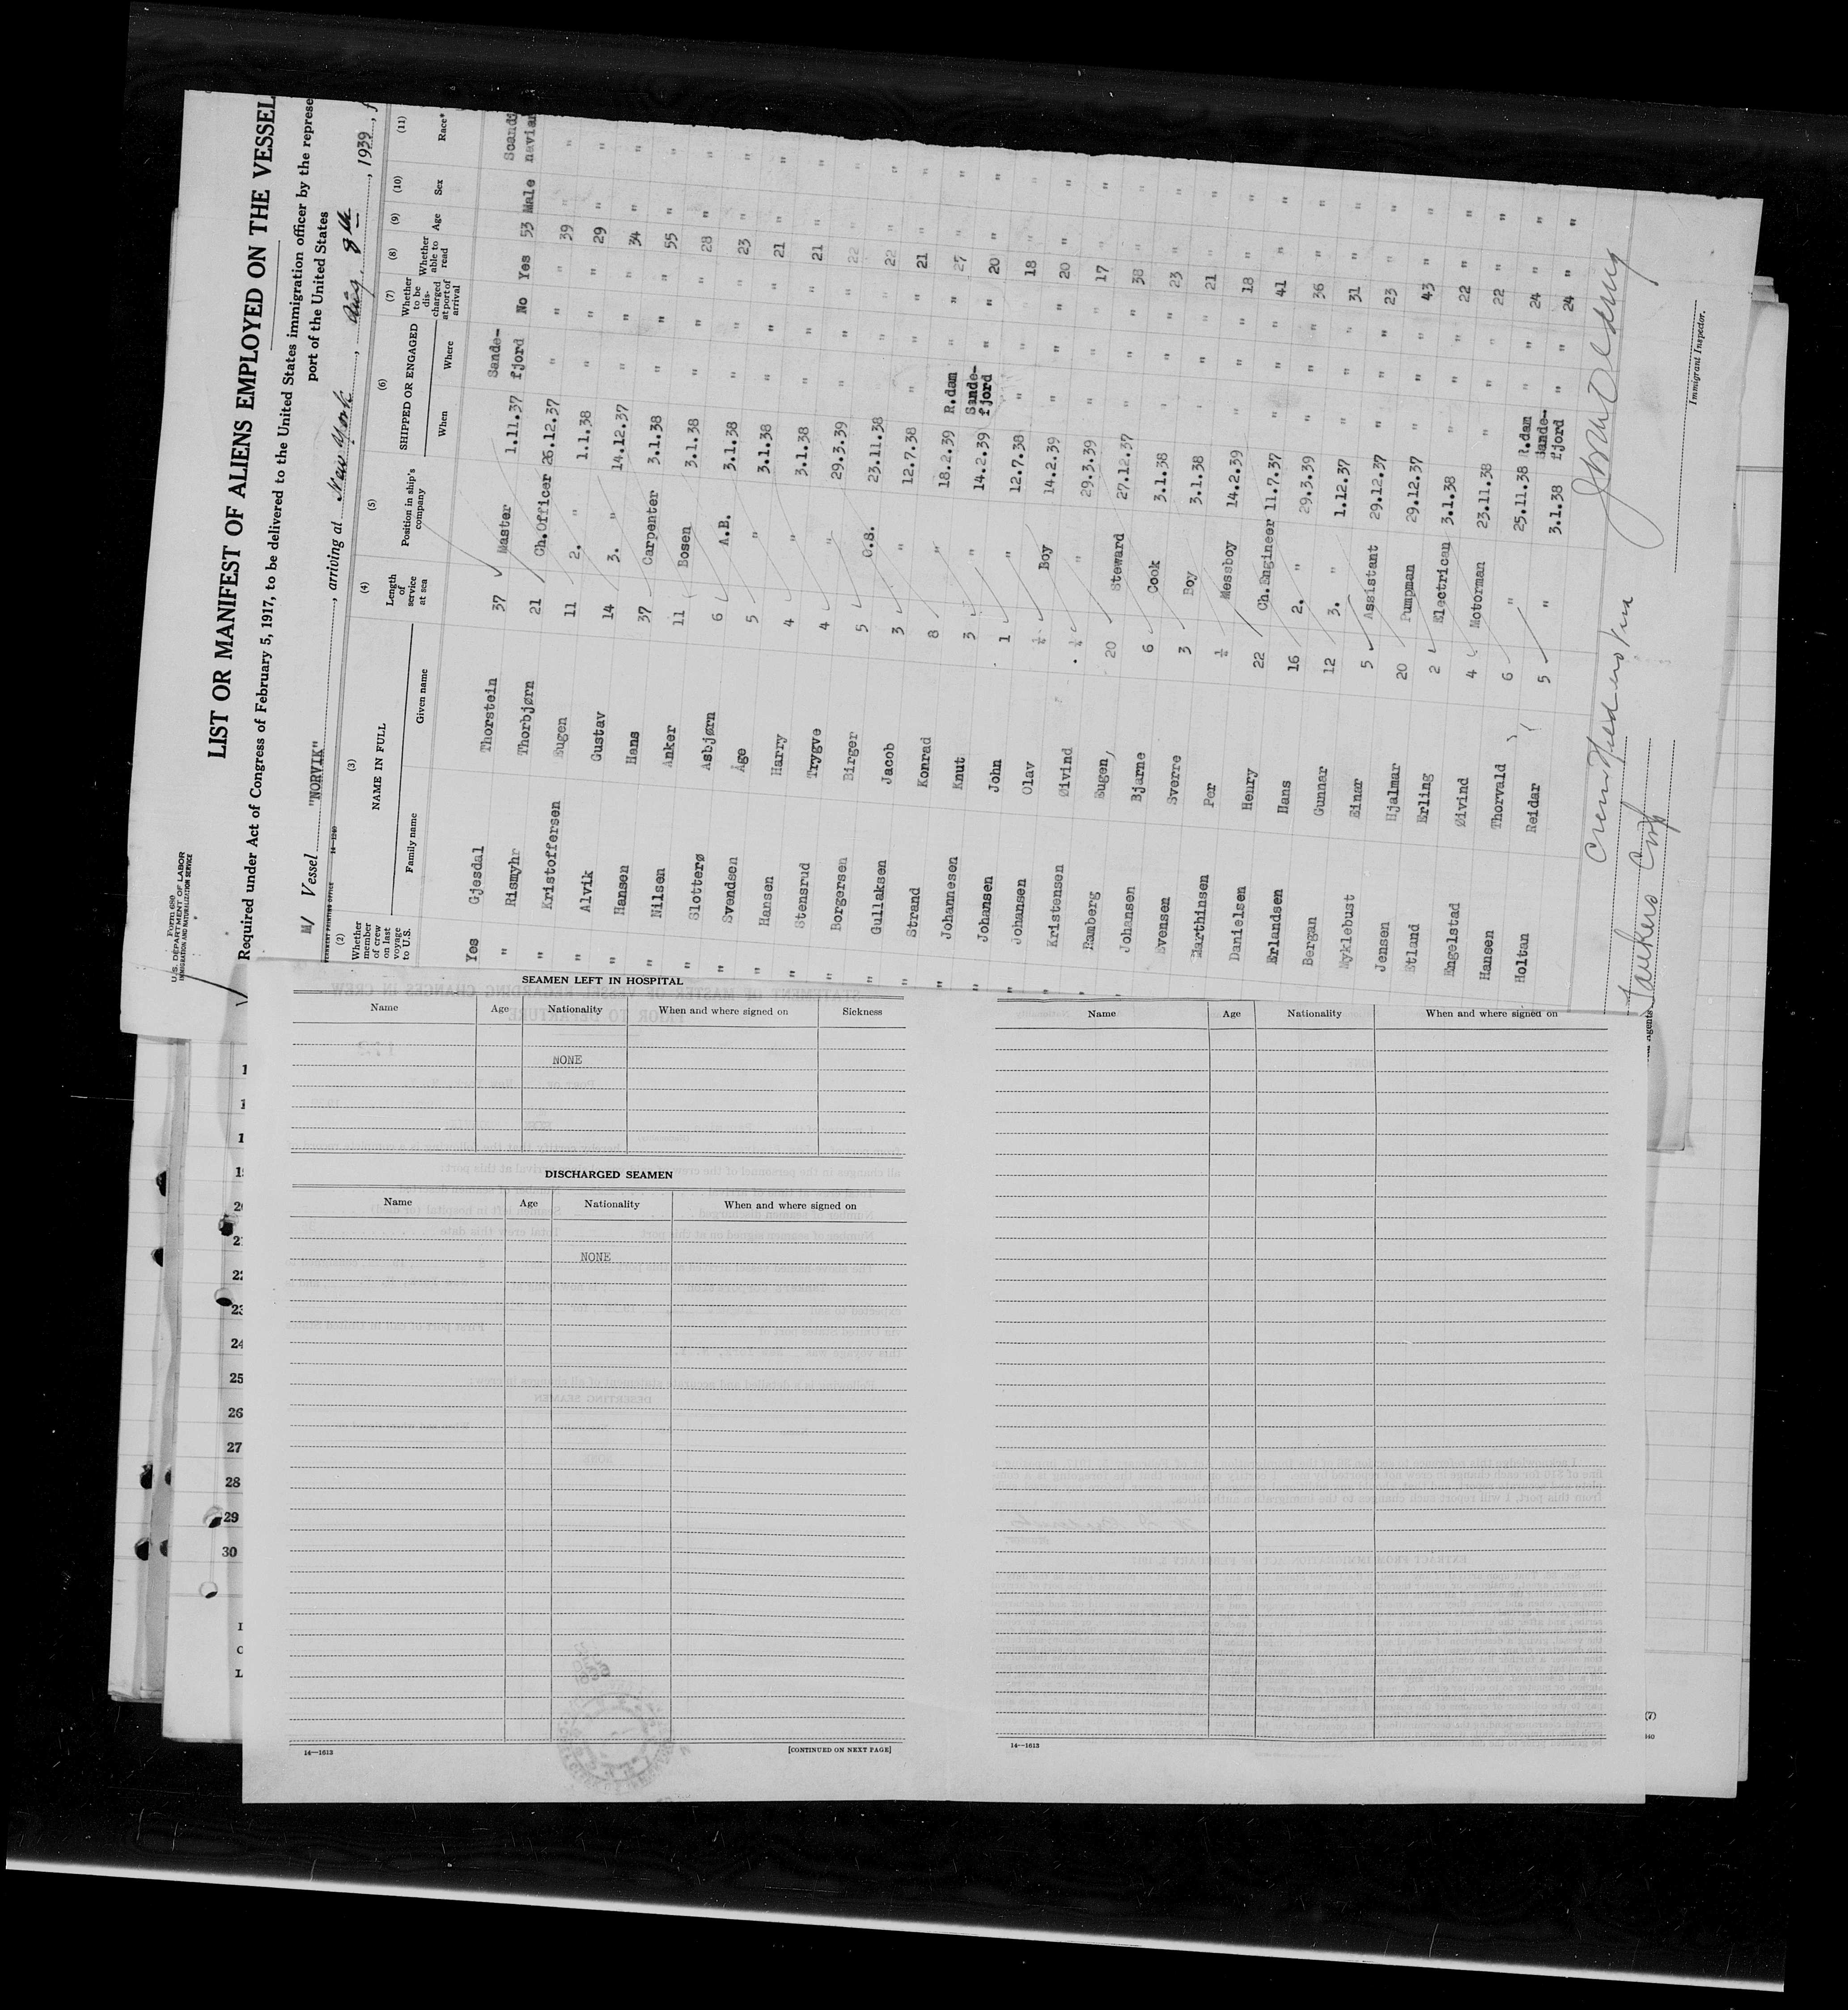 Form 680
U.S. DEPARTMENT OF LABOR
IMMIGRATION AND NATURALIZATION SERVICE
LIST OR MANIFEST OF ALIENS EMPLOYED ON THE VESSEL
Required under Act of Congress of February 5, 1917, to be delivered to the United States immigration officer by the represe
port of the United States
M/ Vessel "NORVIK", arriving at New York, Aug. 8th, 1939, f
14—1240
(2) (3) (4) (5) (6) (7) (8) (9) (10) (11)
Whether member of crew on last voyage to U.S. NAME IN FULL Family name Given name Length of service at sea Position in ship's company SHIPPED OR ENGAGED When Where Whether to be discharged at port of arrival Whether able to read Age Sex Race*
Yes Gjesdal Thorstein 37 Master 1.11.37 Sande-fjord No Yes 53 Male Scandinavian
" Rismyhr Thorbjørn 21 Ch.Officer 26.12.37 " " " 39 " "
" Kristoffersen Eugen 11 2. " 1.1.38 " " " 29 " "
" Alvik Gustav 14 3. " 14.12.37 " " " 34 " "
" Hansen Hans 37 Carpenter 3.1.38 " " " 55 " "
" Nilsen Anker 11 Bosen 3.1.38 " " " 28 " "
" Slotterø Asbjørn 6 A.B. 3.1.38 " " " 23 " "
" Svendsen Åge 5 " 3.1.38 " " " 21 " "
" Hansen Harry 4 " 3.1.38 " " " 21 " "
" Stensrud Trygve 4 " 29.3.39 " " " 22 " "
" Borgersen Birger 5 O.S. 23.11.38 " " " 22 " "
" Gullaksen Jacob 3 " 12.7.38 " " " 21 " "
" Strand Konrad 8 " 18.2.39 R.dam " " 27 " "
" Johannesen Knut 3 " 14.2.39 Sande-fjord " " 20 " "
" Johansen John 1 " 12.7.38 " " " 18 " "
" Johansen Olav Boy 14.2.39 " " " 20 " "
" Kristensen Øivind " 29.3.39 " " " 17 " "
" Ramberg Eugen, 20 Steward 27.12.37 " " " 38 " "
" Johansen Bjarne 6 Cook 3.1.38 " " " 23 " "
Evensen Sverre 3 Boy 3.1.38 " " " 21 " "
Marthinsen Per ½ Messboy 14.2.39 " " " 18 " "
Danielsen Henry 22 Ch.Engineer 11.7.37 " " " 41 " "
Erlandsen Hans 16 2. " 29.3.39 " " " 36 " "
Bergan Gunnar 12 3. " 1.12.37 " " " 31 " "
Myklebust Einar 5 Assistant 29.12.37 " " " 23 " "
Jensen Hjalmar 20 Pumpman 29.12.37 " " " 43 " "
Etland Erling 2 Electrican 3.1.38 " " " 22 " "
Engelstad Øivind 4 Motorman 23.11.38 " " " 22 " "
Hansen Thorvald 6 " 25.11.38 R.dam " " 24 " "
Holtan Reidar 5 " 3.1.38 Sande-fjord " " 24 " "
Immigrant Inspector.
Tankers Corp
Agents
SEAMEN LEFT IN HOSPITAL
Name Age Nationality When and where signed on Sickness
NONE
DISCHARGED SEAMEN
Name Age Nationality When and where signed on
NONE
14—1613
[CONTINUED ON NEXT PAGE]
Name Age Nationality When and where signed on
14—1613
22
24
25
26
27
28
29
30
(7)